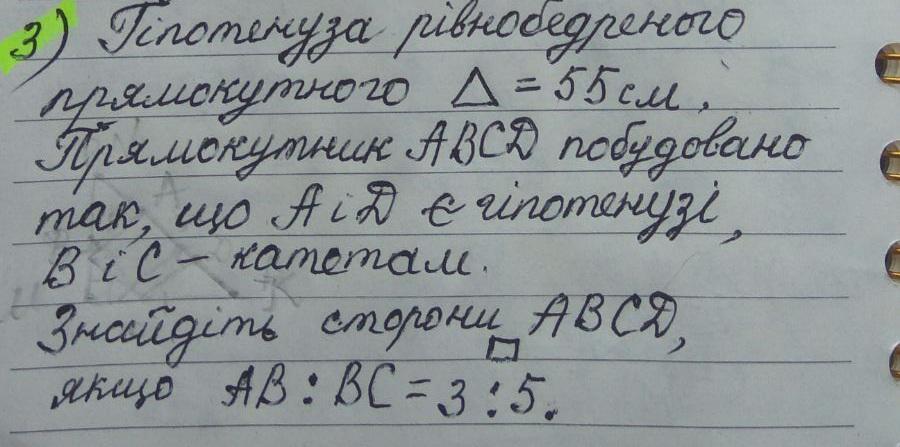 3) Гіпотенуза рівнобедреного
прямокутного △ = 55 см.
Прямокутник ABCD побудовано
так, що A і D є гіпотенузі,
B і C – катетам.
Знайдіть сторони ▭ ABCD,
якщо AB : BC = 3 : 5.